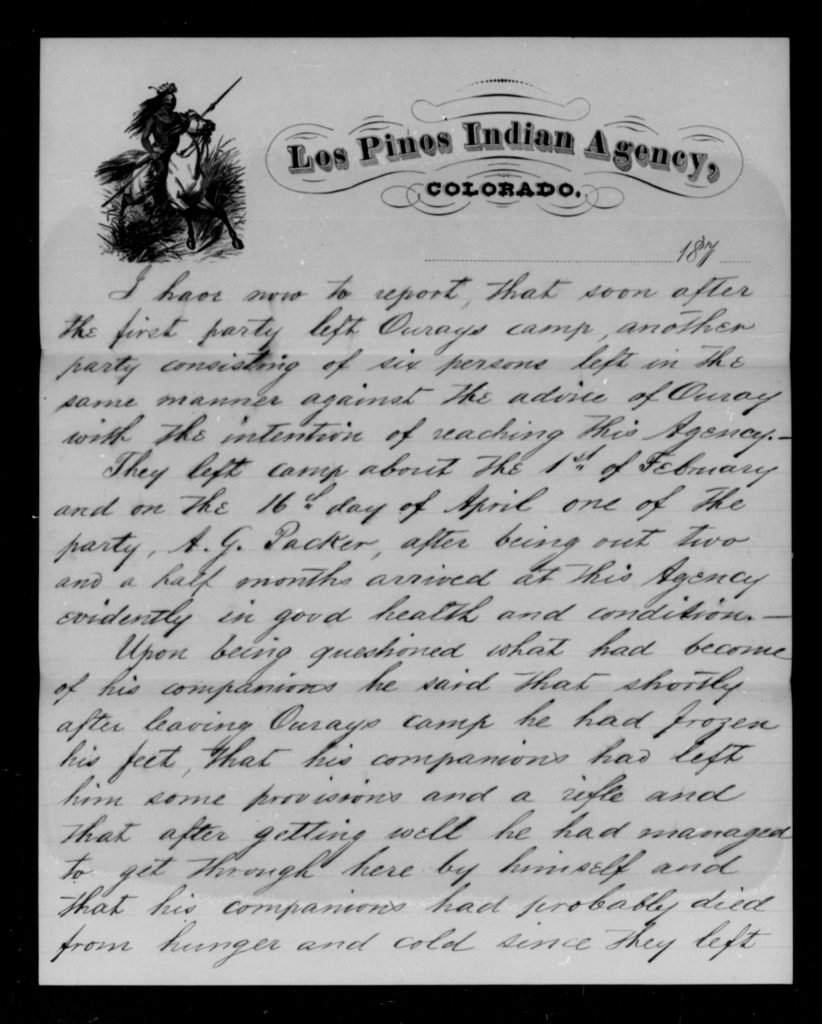 Los Pinos Indian Agency,
COLORADO.
187
I have now to report, that soon after
the first party left Ourays camp, another
party consisting of six persons left in the
same manner against the advice of Ouray
with the intention of reaching this Agency.—
They left camp about the 1st of February
and on the 16th day of April one of the
party, A. G. Packer, after being out two
and a half months arrived at this Agency
evidently in good health and condition.—
Upon being questioned what had become
of his companions he said that shortly
after leaving Ourays camp he had frozen
his feet, that his companions had left
him some provisions and a rifle and
that after getting well he had managed
to get through here by himself and
that his companions had probably died
from hunger and cold since they left